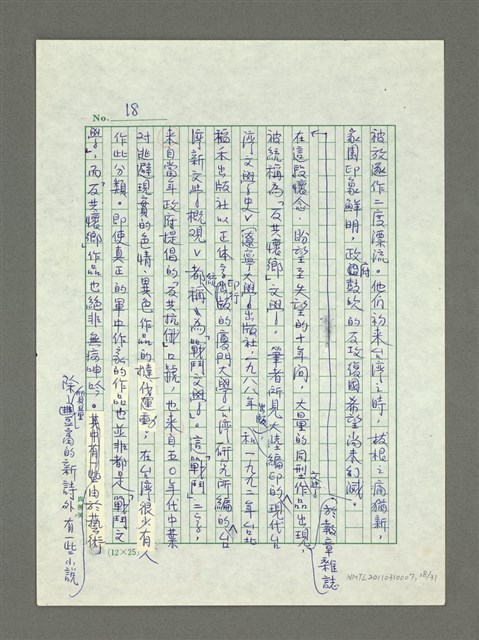 No. 18
被放逐作二度漂流。他們初來台灣之時,拔根之痛猶新,
家園印象鮮明,政府鼓吹的反攻復國希望尚未幻滅。
在這段懷念、盼望至失望的十年間,大量的同型文學作品出現於報章雜誌,
被統稱為「反共懷鄉」文學。筆者所見大陸編印的「現代台
灣文學史」(遼寧大學出版社,一九八八年出版)和一九九二年台北
稻禾出版社以正体字印行的廈門大學台灣研究所編的「台
灣新文學概觀」,都稱為「戰鬥文學」。這「戰鬥」二字,
來自當年政府提倡的「反共抗俄」口號,也來自五〇年代中葉
對逃避現實的色情、異色作品的撻伐運動;在台灣很少有人
作此分類。即使真正的軍中作家的作品也並非都是「戰鬥文
學」,而「反共懷鄉」作品也絕非無病呻吟。其中有些由於藝術
除質量豐富的新詩外有一些小說
(12×25)
NMTL20110310007, 18/31